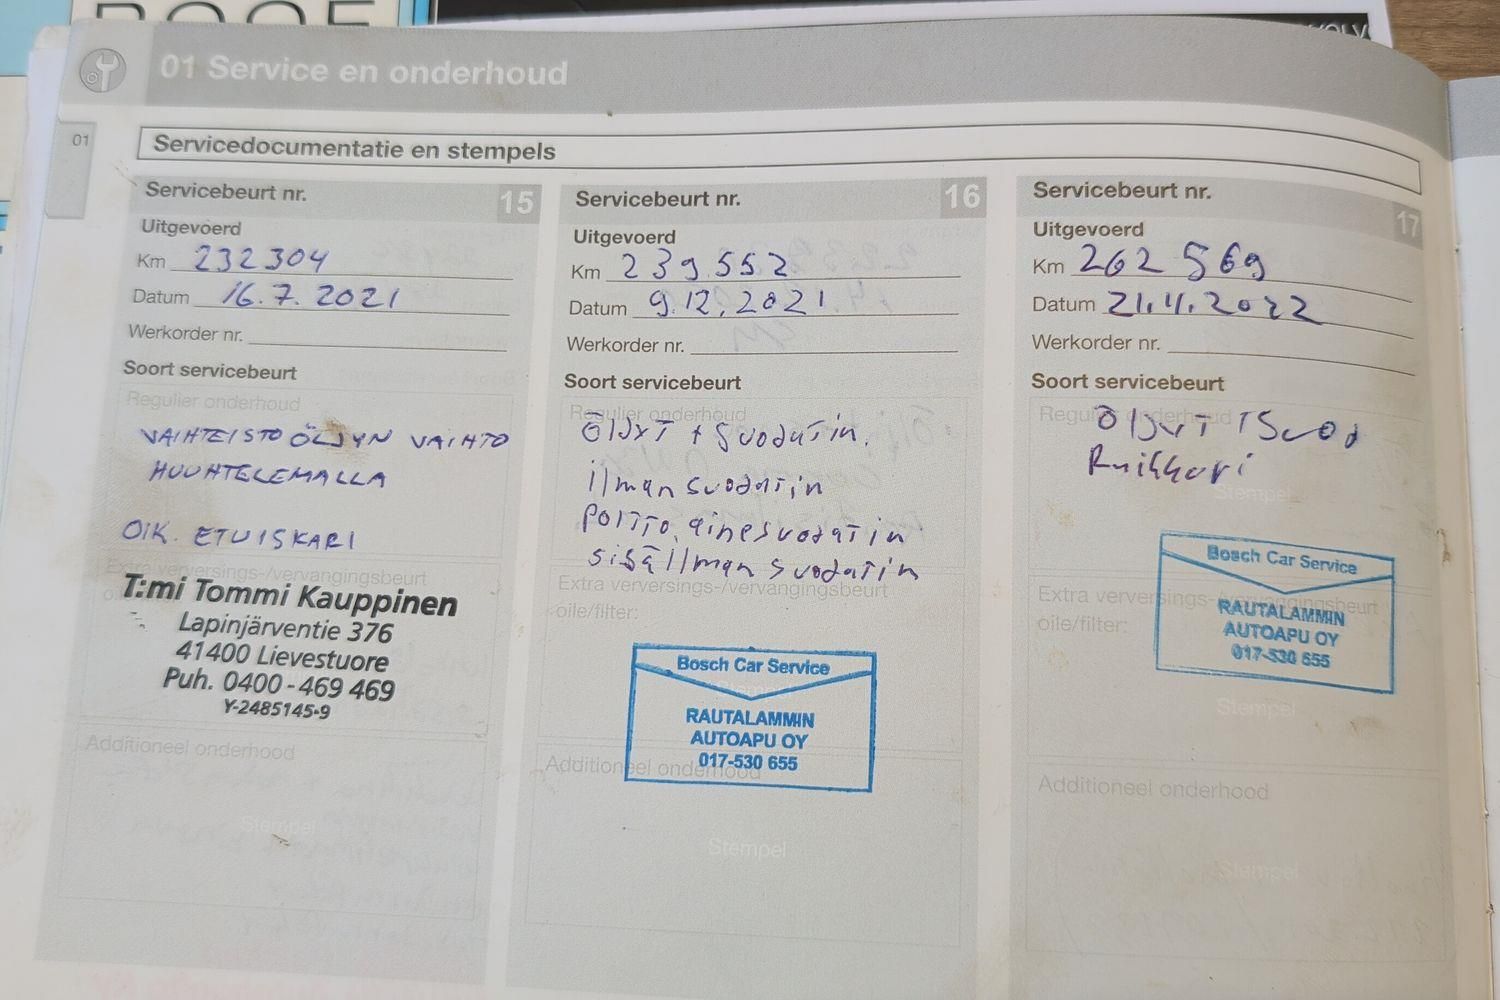 01 Service en onderhoud
01
Servicedocumentatie en stempels
Servicebeurt nr. 15
Uitgevoerd
Km 232304
Datum 16.7.2021
Werkorder nr.
Soort servicebeurt
Regulier onderhoud
VAIHTEISTOÖLJYN VAIHTO
HUUHTELEMALLA
OIK. ETUISKARI
Extra verversings-/vervangingsbeurt
T:mi Tommi Kauppinen
Lapinjärventie 376
41400 Lievestuore
Puh. 0400-469 469
Y-2485145-9
Additioneel onderhoud
Stempel
Servicebeurt nr. 16
Uitgevoerd
Km 239.552
Datum 9.12.2021
Werkorder nr.
Soort servicebeurt
Regulier onderhoud
ÖljyT + Suodatin.
ilman suodatin
polTTo.ainesuodatin
sisäilman suodatin
Extra verversings-/vervangingsbeurt
olie/filter:
Stempel
Bosch Car Service
RAUTALAMMIN
AUTOAPU OY
017-530 655
Additioneel onderhoud
Stempel
Servicebeurt nr. 17
Uitgevoerd
Km 262 569
Datum 21.11.2022
Werkorder nr.
Soort servicebeurt
Regulier onderhoud
ÖljyT /Suod
Stempel
Extra verversings-/vervangingsbeurt
olie/filter:
Bosch Car Service
RAUTALAMMIN
AUTOAPU OY
017-530 655
Stempel
Additioneel onderhoud
Stempel